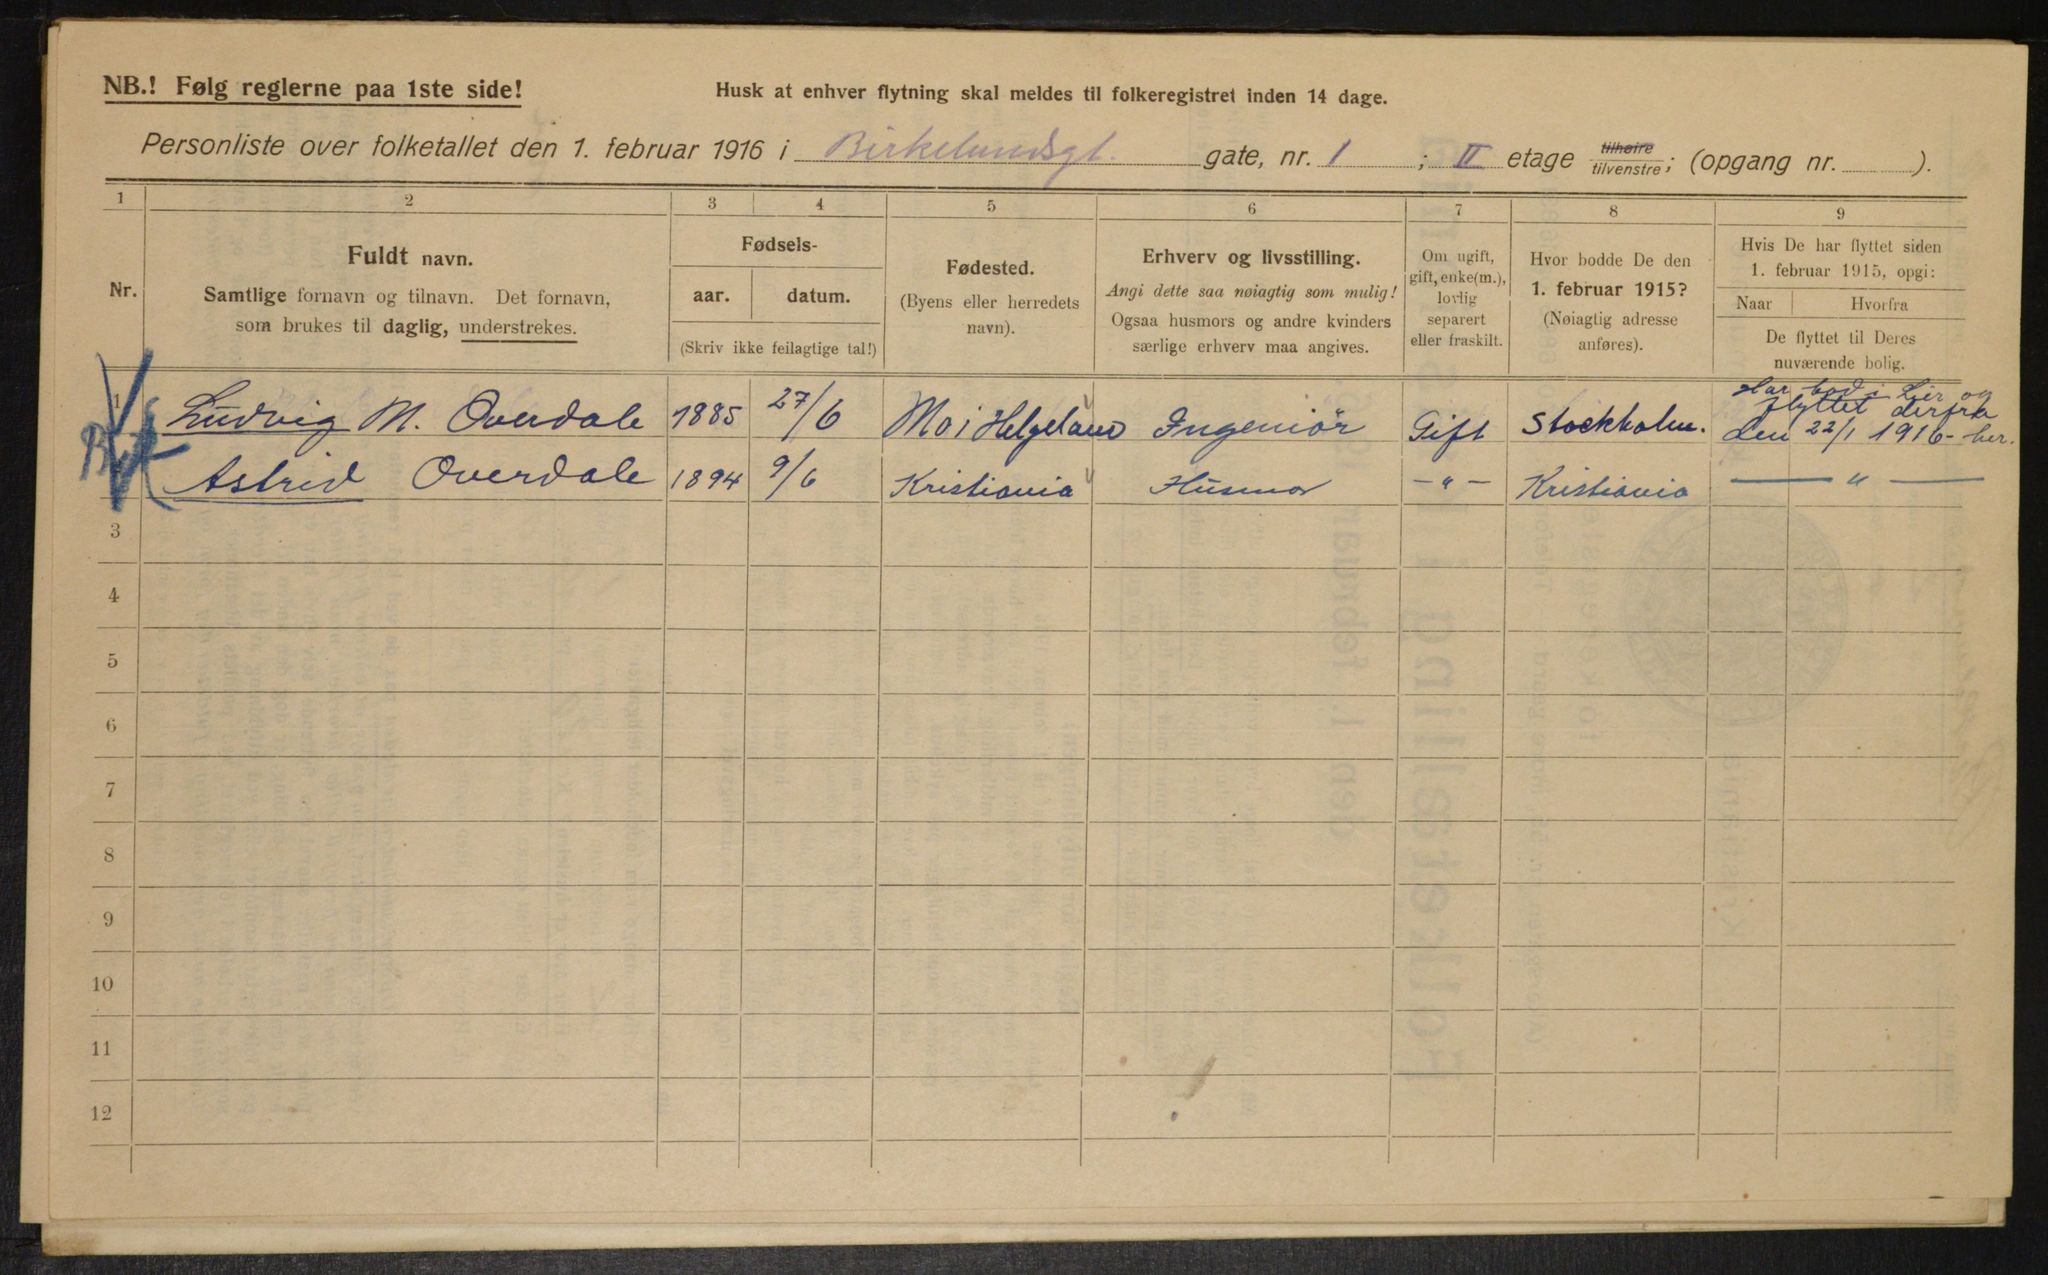 NB.! Følg reglerne paa 1ste side!
Husk at enhver flytning skal meldes til folkeregistret inden 14 dage.
Personliste over folketallet den 1. februar 1916 i Birkelundsgt. gate, nr. 1 ; II etage tilhøire tilvenstre; (opgang nr. ).
1 2 3 4 5 6 7 8 9
Nr.
Fuldt navn.
Samtlige fornavn og tilnavn. Det fornavn,
som brukes til daglig, understrekes.
Fødsels-
aar. datum.
(Skriv ikke feilagtige tal!)
Fødested.
(Byens eller herredets
navn).
Erhverv og livsstilling.
Angi dette saa nøiagtig som mulig!
Ogsaa husmors og andre kvinders
særlige erhverv maa angives.
Om ugift,
gift, enke(m.),
lovlig
separert
eller fraskilt.
Hvor bodde De den
1. februar 1915?
(Nøiagtig adresse
anføres).
Hvis De har flyttet siden
1. februar 1915, opgi:
Naar Hvorfra
De flyttet til Deres
nuværende bolig.
1 Ludvig M. Overdale 1885 27/6 Mo i Helgeland Ingeniör Gift Stockholm.
Har bod i Lier og
flyttet derfra
den 22/1 1916 - her.
Astrid Overdale 1894 9/6 Kristiania Husmor - " - Kristiania — " —
3
4
5
6
7
8
9
10
11
12